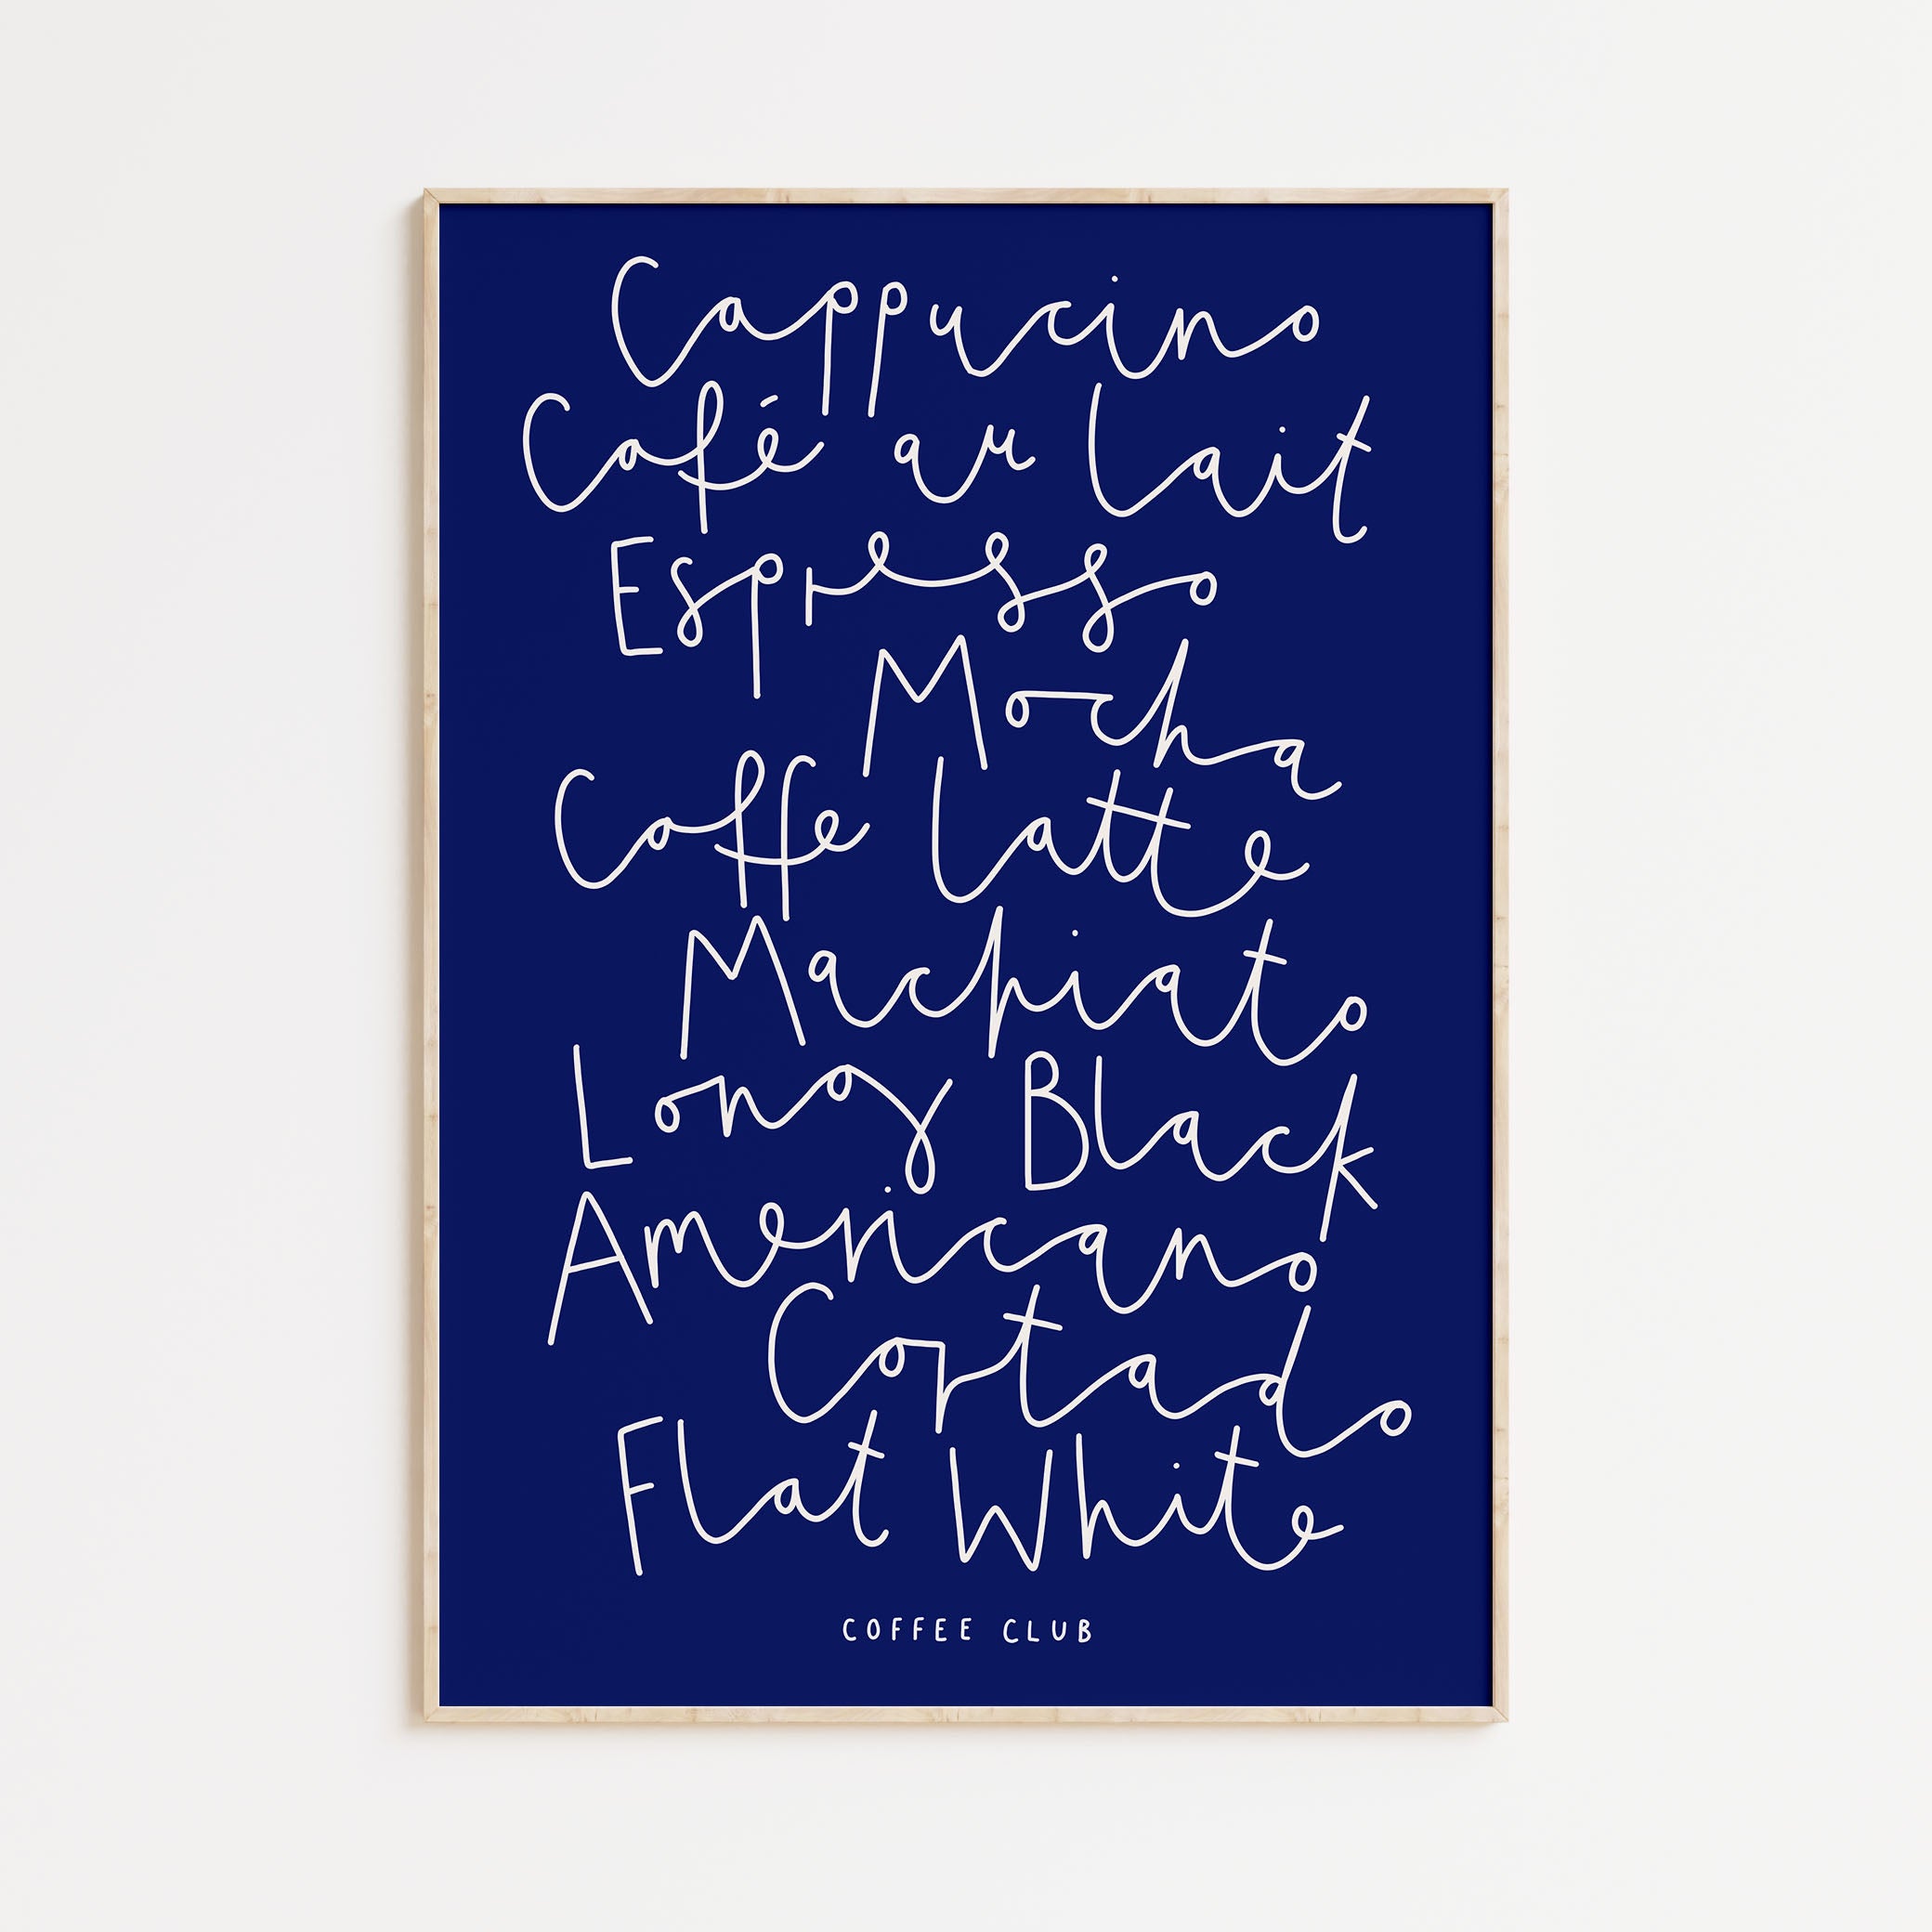 Cappucino
Café au lait
Espresso
Mocha
Caffe Latte
Machiato
Long Black
Americano
Cortado
Flat White
COFFEE CLUB